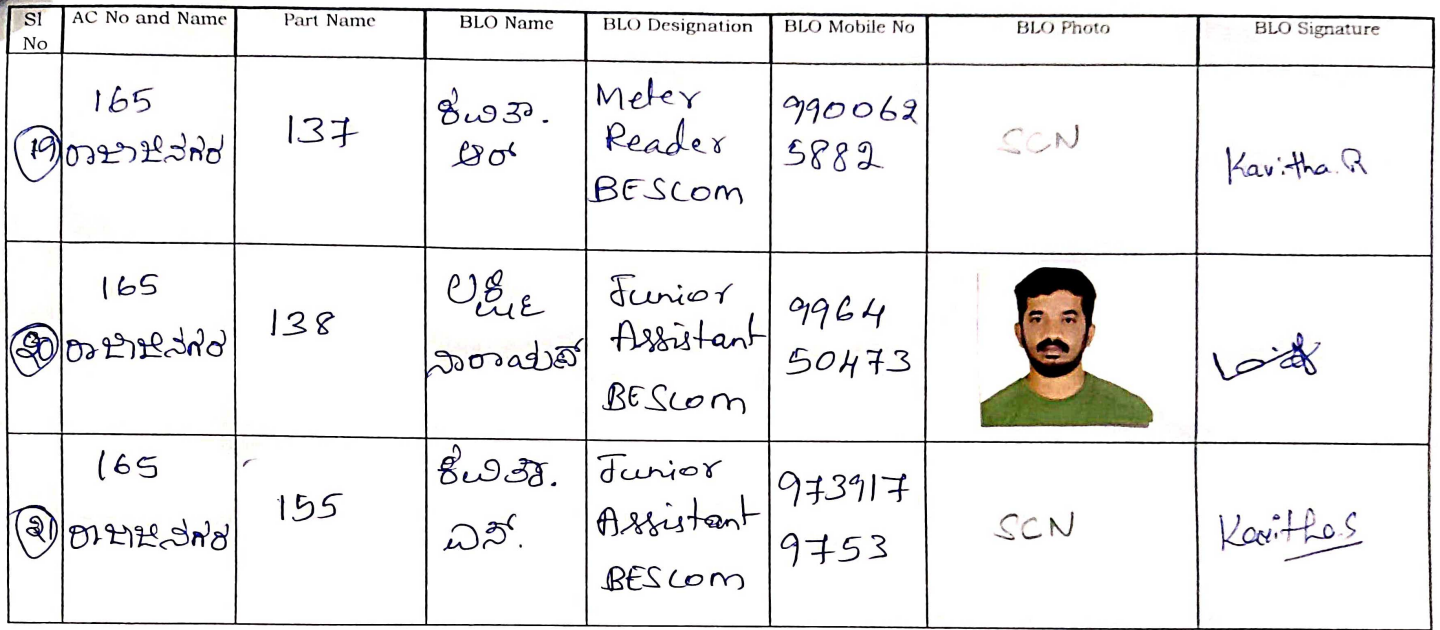 Sl No
AC No and Name
Part Name
BLO Name
BLO Designation
BLO Mobile No
BLO Photo
BLO Signature
19
165
ರಾಜಾಜಿನಗರ
137
ಕವಿತಾ.
ಆರ್
Meter
Reader
BESCOM
990062
5882
SCN
Kavitha.R
20
165
ರಾಜಾಜಿನಗರ
138
ಲಕ್ಷ್ಮೀ
ನಾರಾಯಣ್
Junior
Assistant
BESCOM
9964
50473
21
165
ರಾಜಾಜಿನಗರ
155
ಕವಿತಾ.
ಎಸ್.
Junior
Assistant
BESCOM
973917
9753
SCN
Kavitha.S